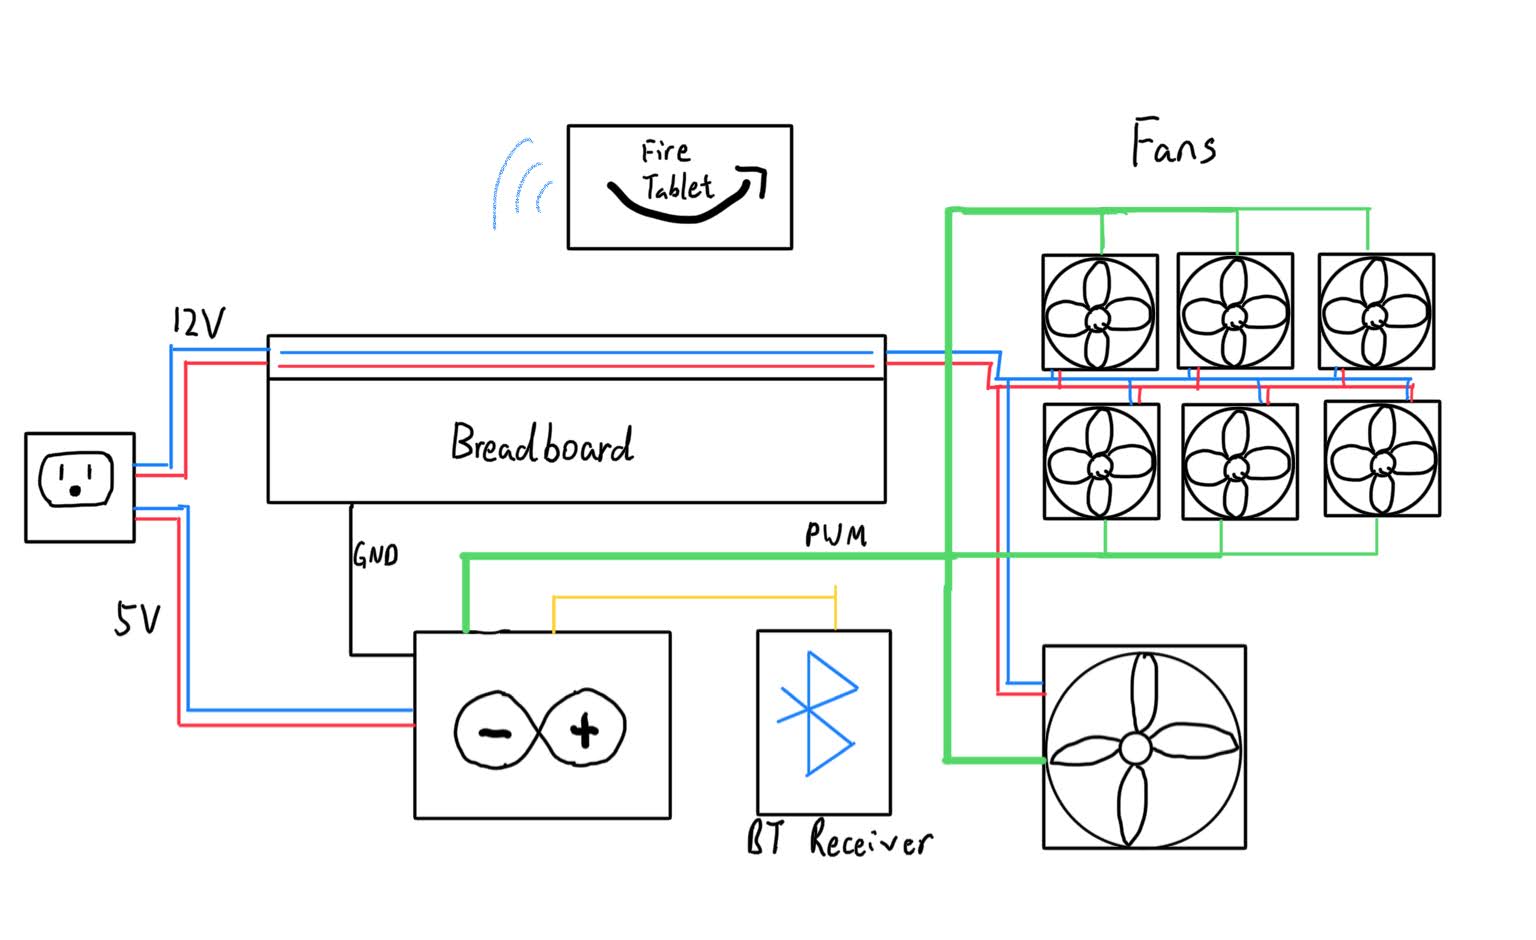 Fire
Tablet
Fans
12V
Breadboard
GND
PWM
5V
BT Receiver